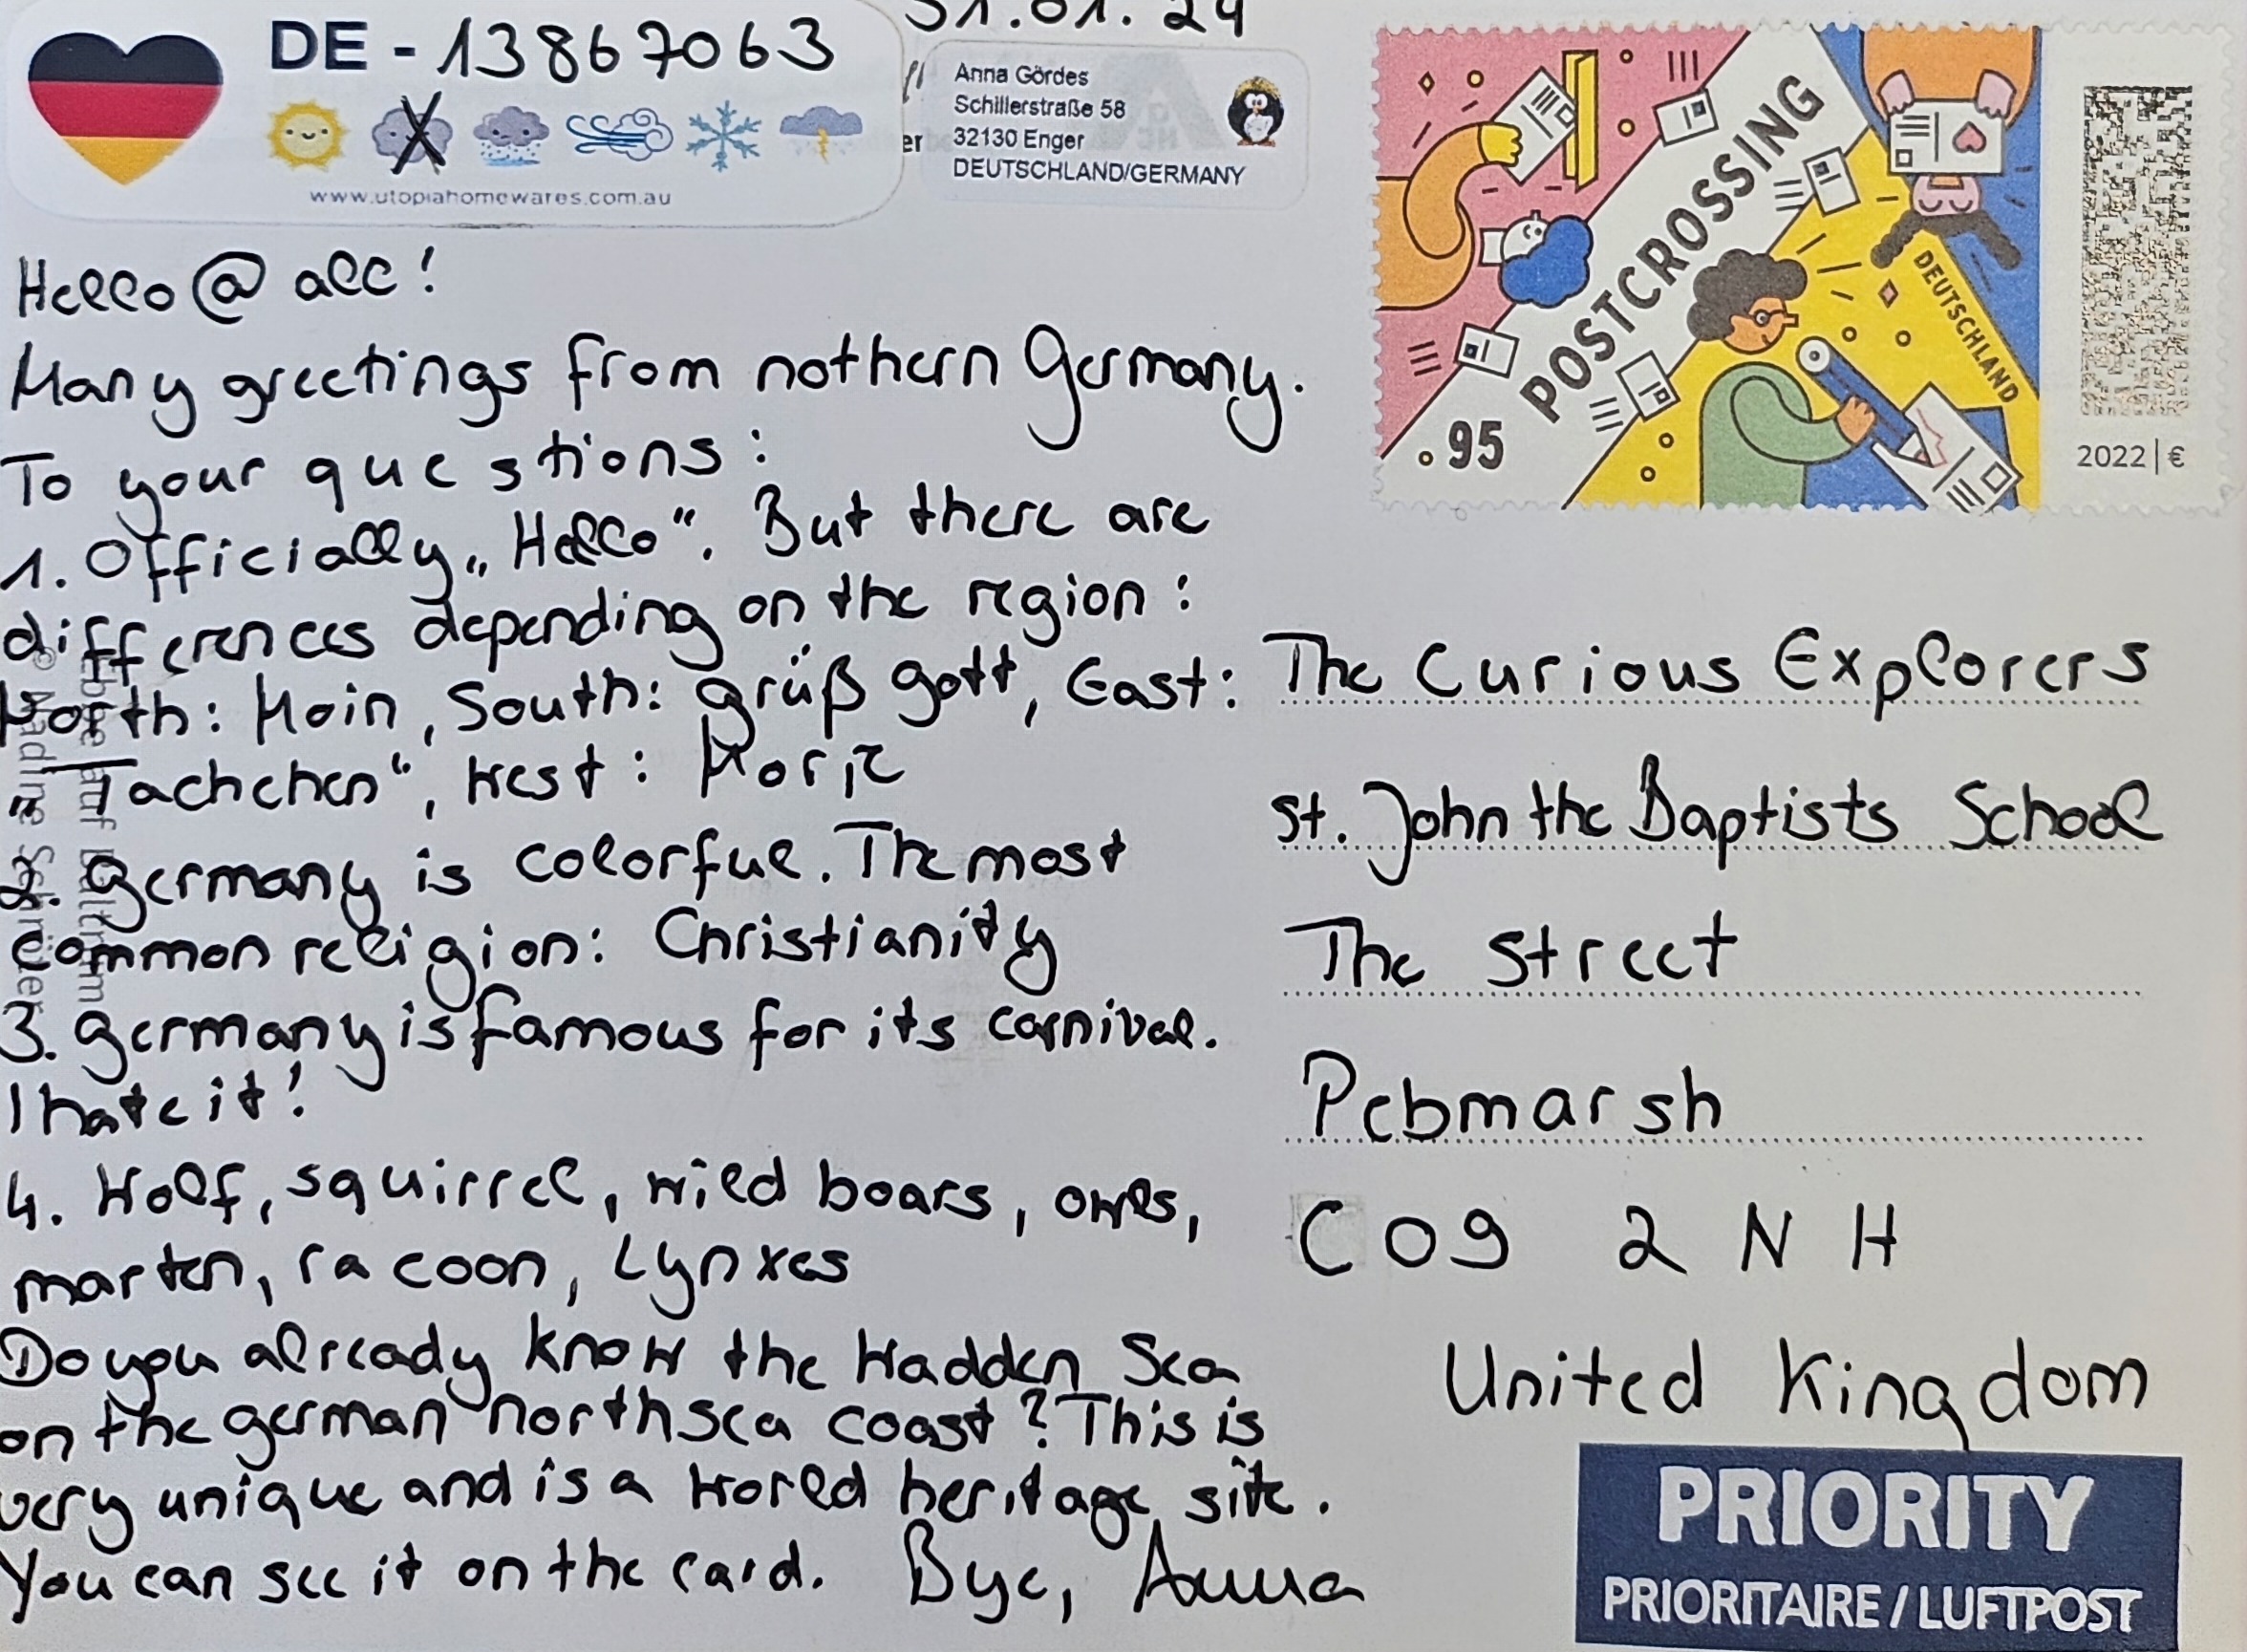 DE - 13867063
www.utopiahomewares.com.au
31.01.24
Anna Gördes
Schillerstraße 58
32130 Enger
DEUTSCHLAND/GERMANY
er
POSTCROSSING
DEUTSCHLAND
.95
2022 | €
Hello @ all!
Many greetings from nothern Germany.
To your questions:
1. Officially „Hello“. But there are
differences depending on the region:
North: Moin, South: grüß gott, East:
„Tachchen“, West: Morje
2. Germany is colorful. The most
common religion: Christianity
3. Germany is famous for its carnival.
I hate it!
4. Wolf, squirrel, wild boars, owls,
marten, racoon, Lynxes
Do you already know the Wadden Sea
on the german northsea coast? This is
very unique and is a world heritage site.
You can see it on the card. Bye, Anna
The Curious Explorers
St. John the Baptists School
The Street
Pebmarsh
CO9 2NH
United Kingdom
PRIORITY
PRIORITAIRE / LUFTPOST
Ebbe auf Baltrum
© Nadine